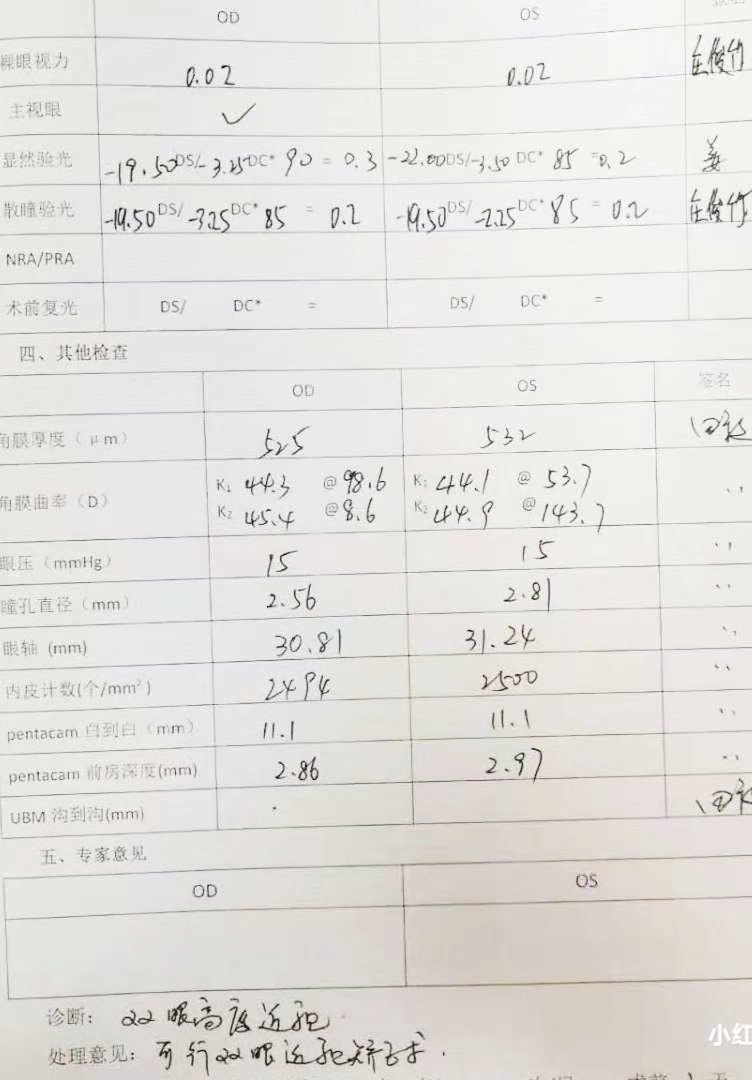 OD OS
裸眼视力 0.02 0.02
主视眼 ✓
显然验光 -19.50DS/-3.25DC* 90 = 0.3 -22.00DS/-3.50DC* 85 = 0.2 姜
散瞳验光 -19.50DS/-3.25DC* 85 = 0.2 -19.50DS/-2.25DC* 85 = 0.2
NRA/PRA
术前复光 DS/ DC* = DS/ DC* =
四、其他检查
OD OS 签名
角膜厚度（μm） 525 532
角膜曲率（D） K₁ 44.3 @98.6 K₁ 44.1 @ 53.7
K₂ 45.4 @8.6 K₂ 44.9 @143.7
眼压（mmHg） 15 15
瞳孔直径（mm） 2.56 2.81
眼轴 (mm) 30.81 31.24
内皮计数(个/mm²) 2494 2500
pentacam 白到白（mm） 11.1 11.1
pentacam 前房深度(mm) 2.86 2.97
UBM 沟到沟(mm)
五、专家意见
OD OS
诊断：双眼高度近视.
处理意见：可行双眼近视矫正术.
小红